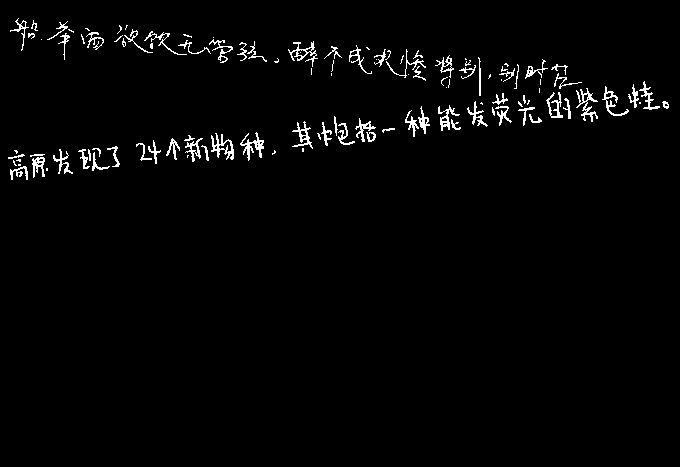 船举酒欲饮无管弦。醉不成欢惨将别，别时茫
高原发现了24个新物种，其中包括一种能发荧光的紫色蛙。